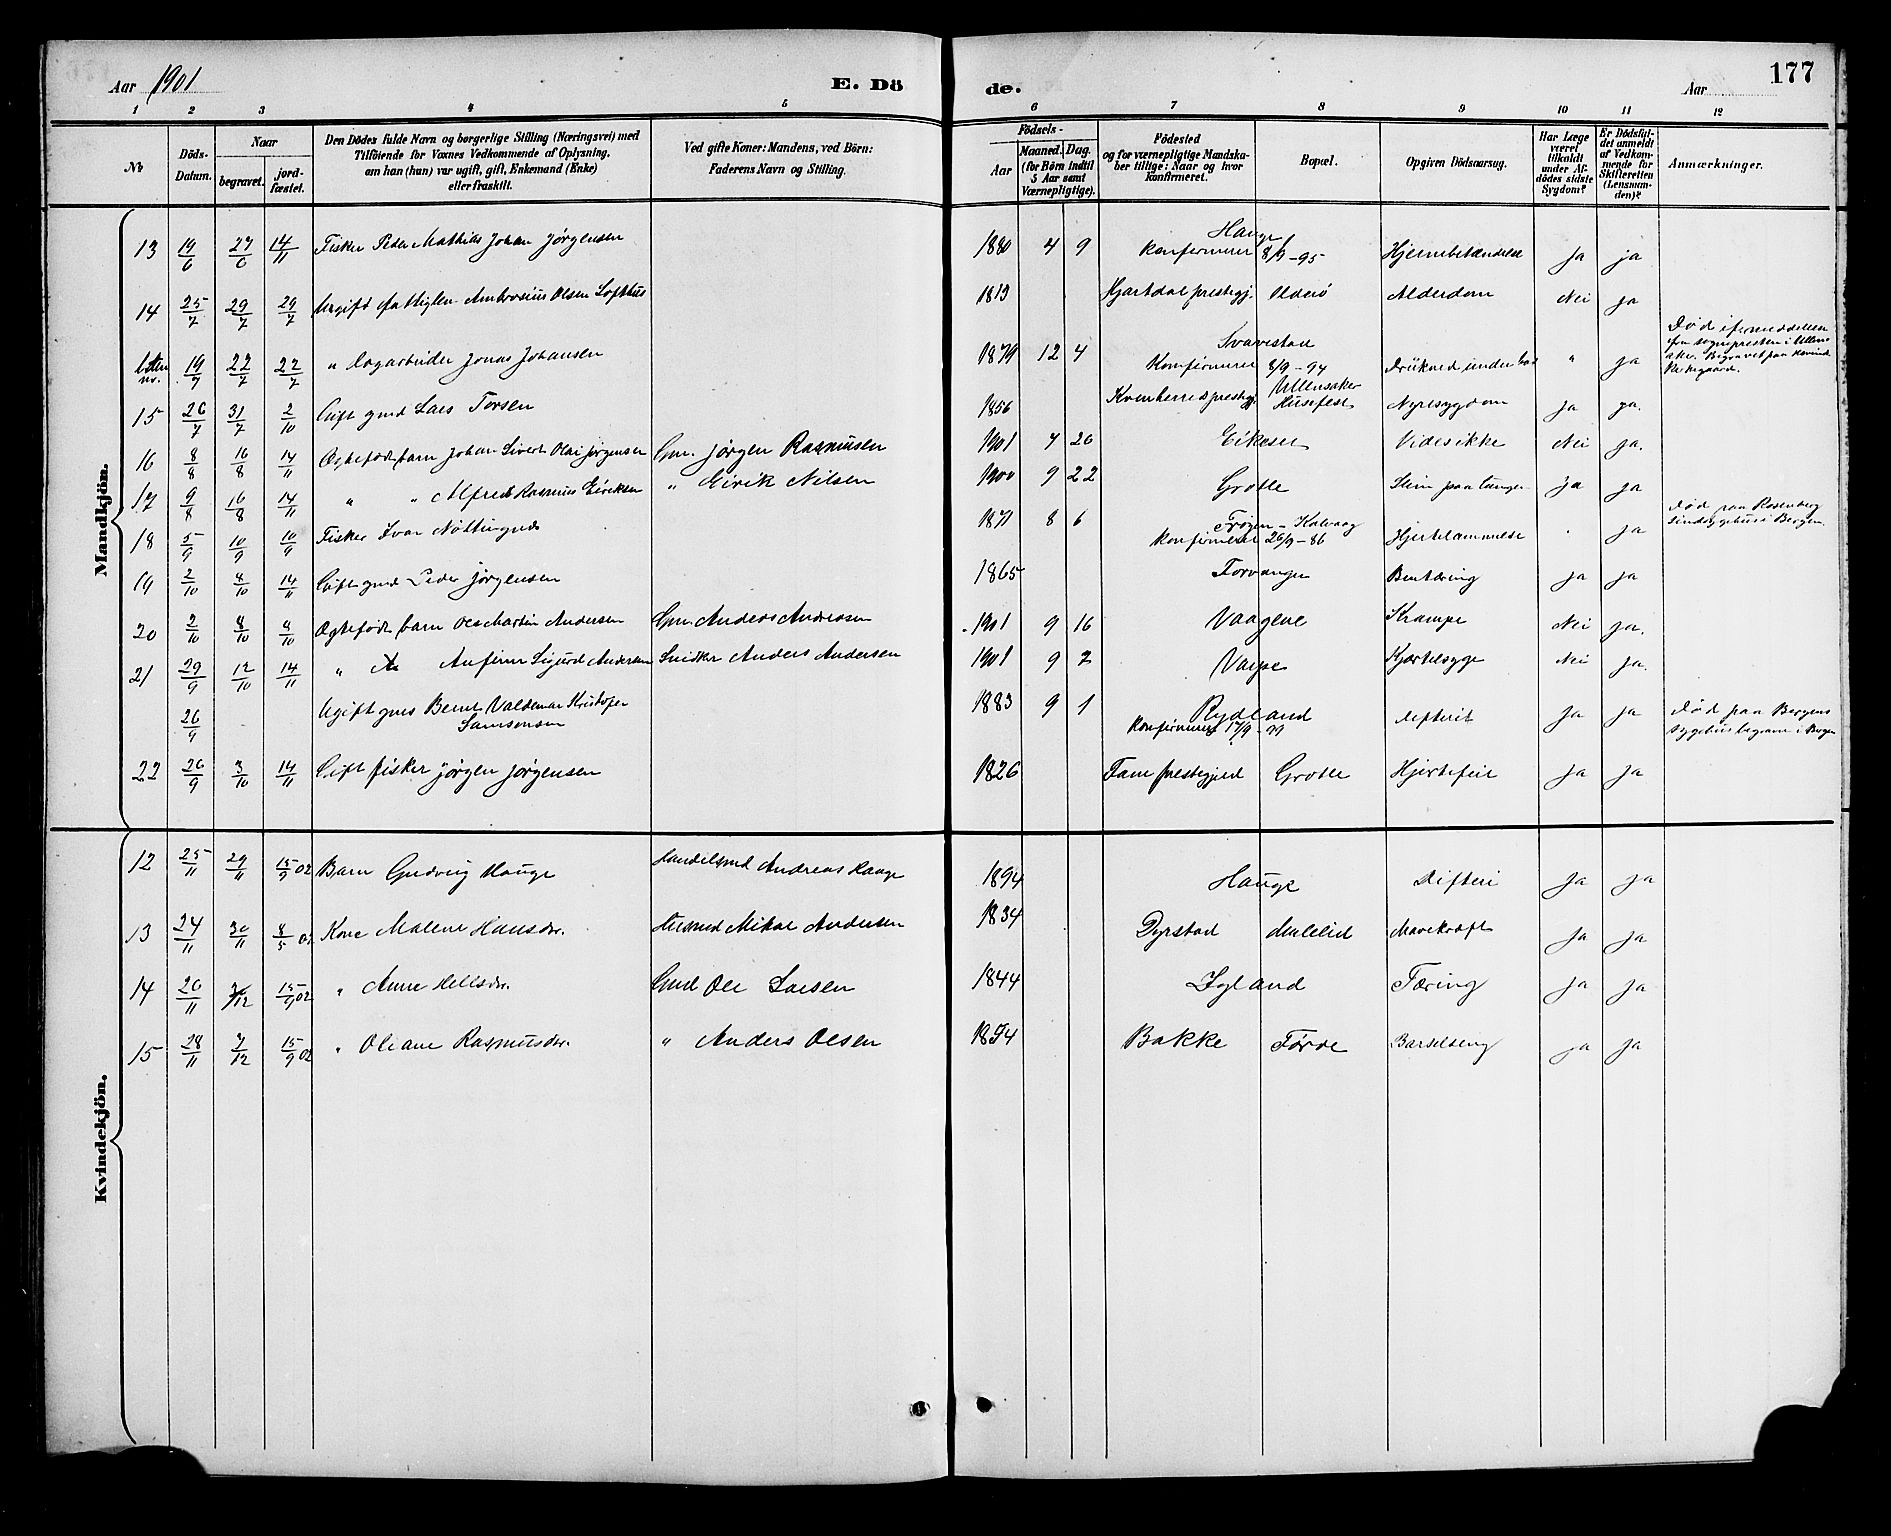 Aar 1901
E. Dö
de.
Aar
177
1 2 3 4 5 6 7 8 9 10 11 12
No
Döds-Datum.
Naar
begravet.
jord-fæstet.
Den Dödes fulde Navn og borgerlige Stilling (Næringsvei) med
Tilföiende for Voxnes Vedkommende af Oplysning,
om han (hun) var ugift, gift, Enkemand (Enke)
eller fraskilt.
Ved gifte Koner: Mandens, ved Börn:
Faderens Navn og Stilling.
Födsels-
Aar
Maaned. Dag.
(for Börn indtil
5 Aar samt
Værnepligtige).
Födested
og for værnepligtige Mandska-
ber tillige: Naar og hvor
konfirmeret.
Bopæl.
Opgiven Dödsaarsag.
Har Læge
været
tilkaldt
under Af-
dödes sidste
Sygdom?
Er Dödsfal-
det anmeldt
af Vedkom-
mende for
Skifteretten
(Lensman-
den)?
Anmærkninger.
Mandkjön.
13 19/6 27/6 14/11 Fisker Peder Mathias Johan Jørgensen 1880 4 9 Hauge Konfirmeret 8/9-95 Hjernebetændelse Ja ja
14 25/7 29/7 29/7 Ugift Ambrosius Olsen Lofthus 1813 Hjartdal prestegj. Alderdom Nei ja
19/7 22/7 22/7 " Dagarbeider Jonas Johansen 1879 12 4 Svarestad Konfirmeret 8/9-94 Ullensaker Druknede under " ja Død
15 26/7 31/7 2/10 Gift gmd Lars Torsen 1856 Kvinherreds prestegj. Husefest Nyresygdom Ja ja.
16 8/8 16/8 14/11 Ægtefødt barn Johan Sivert Olai Jørgensen Gm. Jørgen Rasmusen 1901 4 26 Vides ikke Nei ja.
17 9/8 16/8 14/11 " " Alfred Rasmus Eiriksen " Eirik Nilsen 1900 9 22 Grotle Slim paa Lunger Ja ja
18 5/9 10/9 10/9 Fisker Ivar 1871 8 6 Frøyen - Kalvaag Konfirmeret 26/9-86 Hjertelammelse ja Død paa Rosenberg Sindsygehus i Bergen.
19 2/10 8/10 14/11 Gift gmd Peder Jørgensen 1865 Ja ja
20 2/10 8/10 8/10 Ægtefødt barn Ole Martin Andersen Gm. Anders Andersen 1901 9 16 Vaagene Krampe Nei ja.
21 29/9 12/10 14/11 " Anfinn Sigurd Andersen Snidker Anders Andersen 1901 9 2 Kjertelsyge Nei ja.
26/9 Ugift gmds Bernt Valdemar Kristofer
Samsonsen 1883 9 1 Rydland Konfirmeret 17/9 Difterit Ja ja Død paa Bergens Sygehus begravet i Bergen
22 26/9 3/10 14/11 Gift fisker Jørgen Jørgensen 1826 Fane prestegjeld Grotle Hjertefeil Ja ja
Kvindekjön.
12 25/11 29/11 15/9 02 Barn Gudvig Hauge Handelsmd Andreas Hauge 1894 Hauge Difteri Ja ja
13 24/11 30/11 8/5 02 Kone Malene Hansdr. Mikal Andersen 1834 Dyrstad Maurkræft Ja ja
14 20/11 3/12 15/9 02 " Anne Gmd Ole Larsen 1844 Igland Tæring Ja ja
15 28/11 7/12 15/9 02 " Oliane Rasmusdr. " Anders Olsen 1874 Bakke Førde Barselseng ja ja